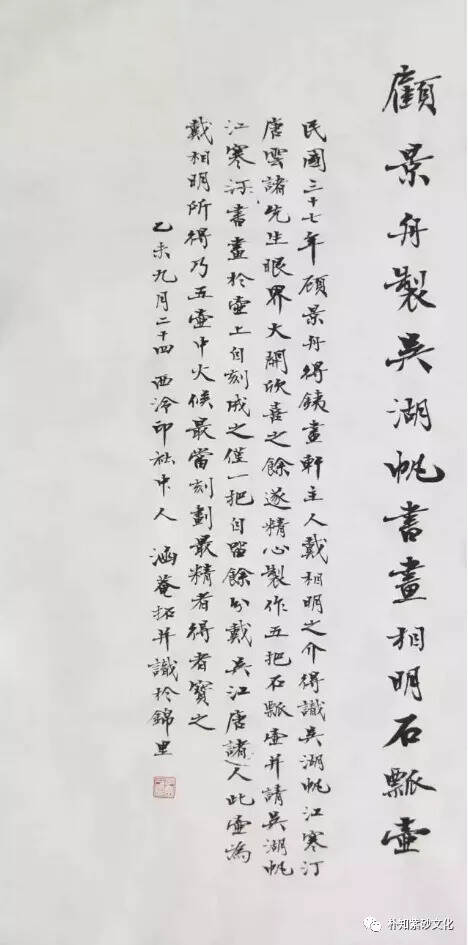 顧景舟製吳湖帆書畫相明石瓢壺
民國三十七年顧景舟得鐵畫軒主人戴相明之介得識吳湖帆江寒汀
唐雲諸先生眼界大開欣喜之餘遂精心製作五把石瓢壺并請吳湖帆
江寒汀書畫於壺上自刻成之僅一把自留餘分戴吳江唐諸人此壺為
戴相明所得乃五壺中火候最當刻劃最精者得者寶之
乙未九月二十四 西泠印社中人 涵菴拓并識於錦里
朴知紫砂文化